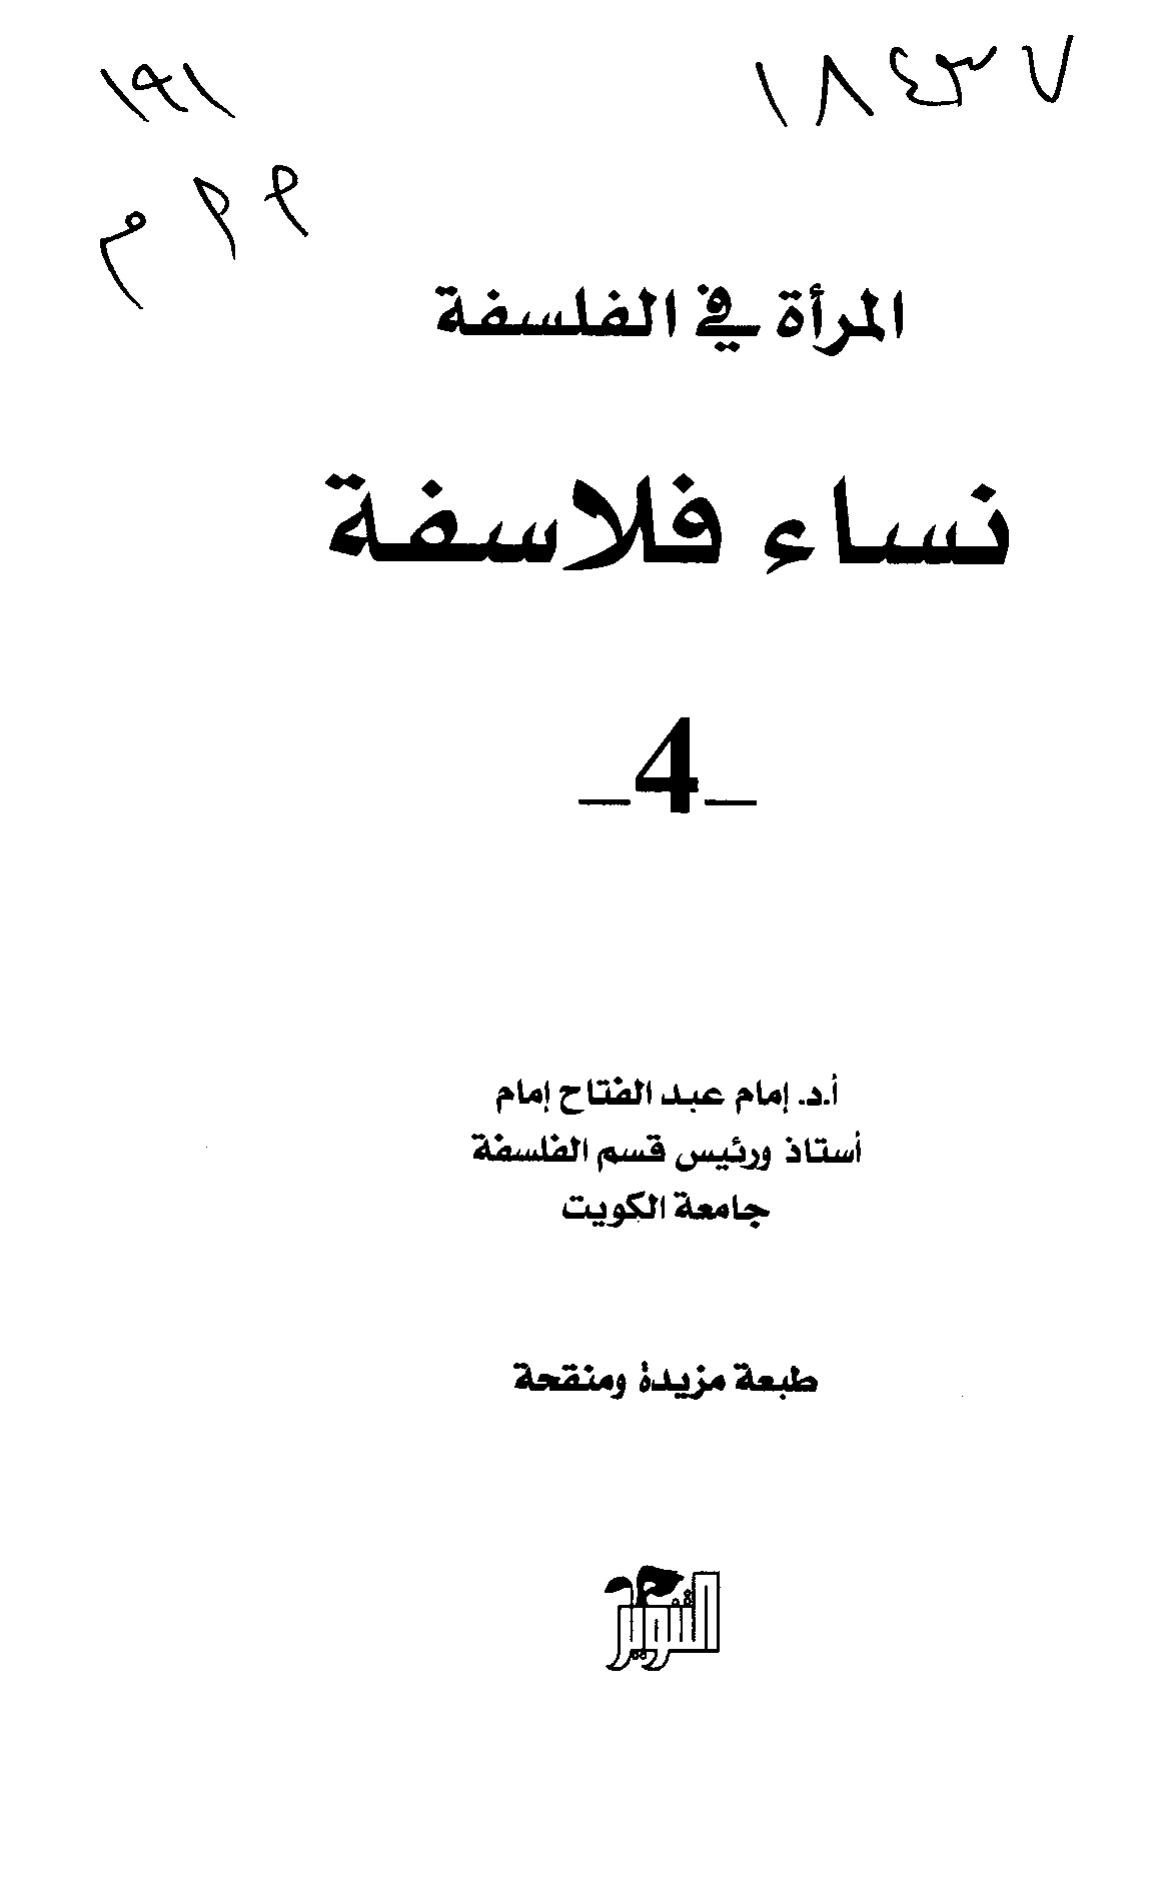 ١٨٤٣٧
١٩١
المرأة في الفلسفة
نساء فلاسفة
_4_
أ.د. إمام عبد الفتاح إمام
أستاذ ورئيس قسم الفلسفة
جامعة الكويت
طبعة مزيدة ومنقحة
التنوير